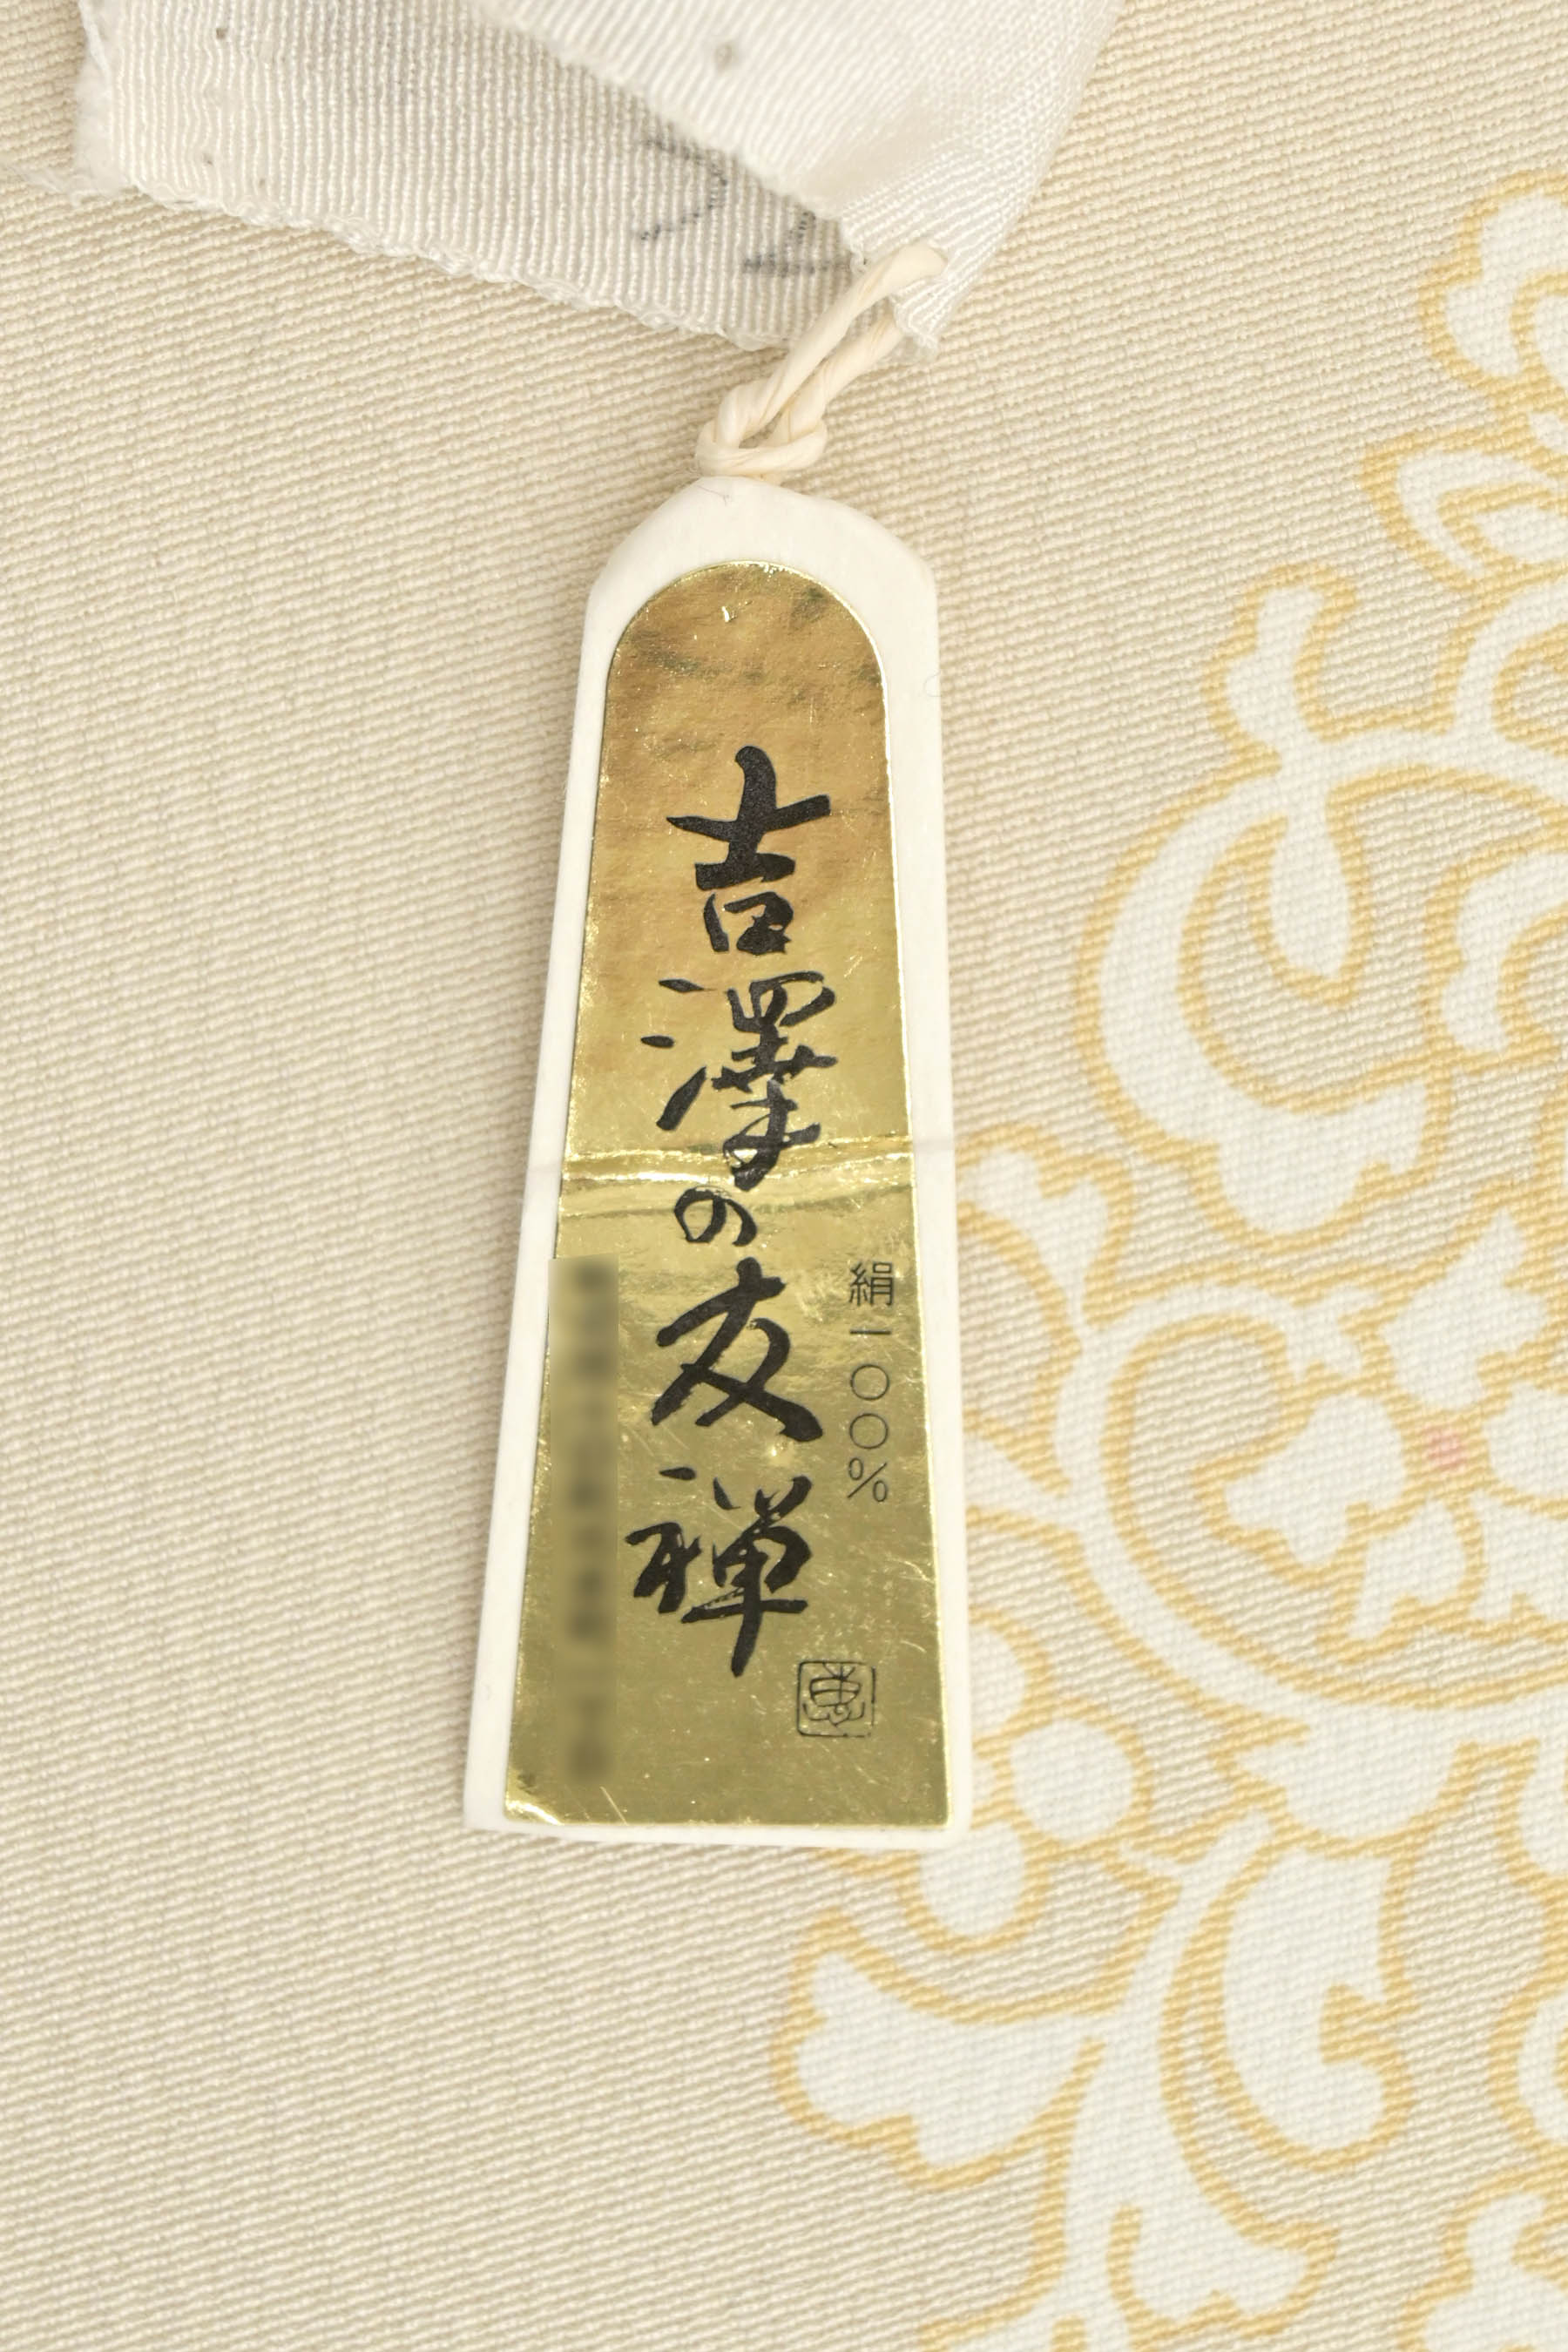 絹一〇〇%
吉澤の友禅
恵